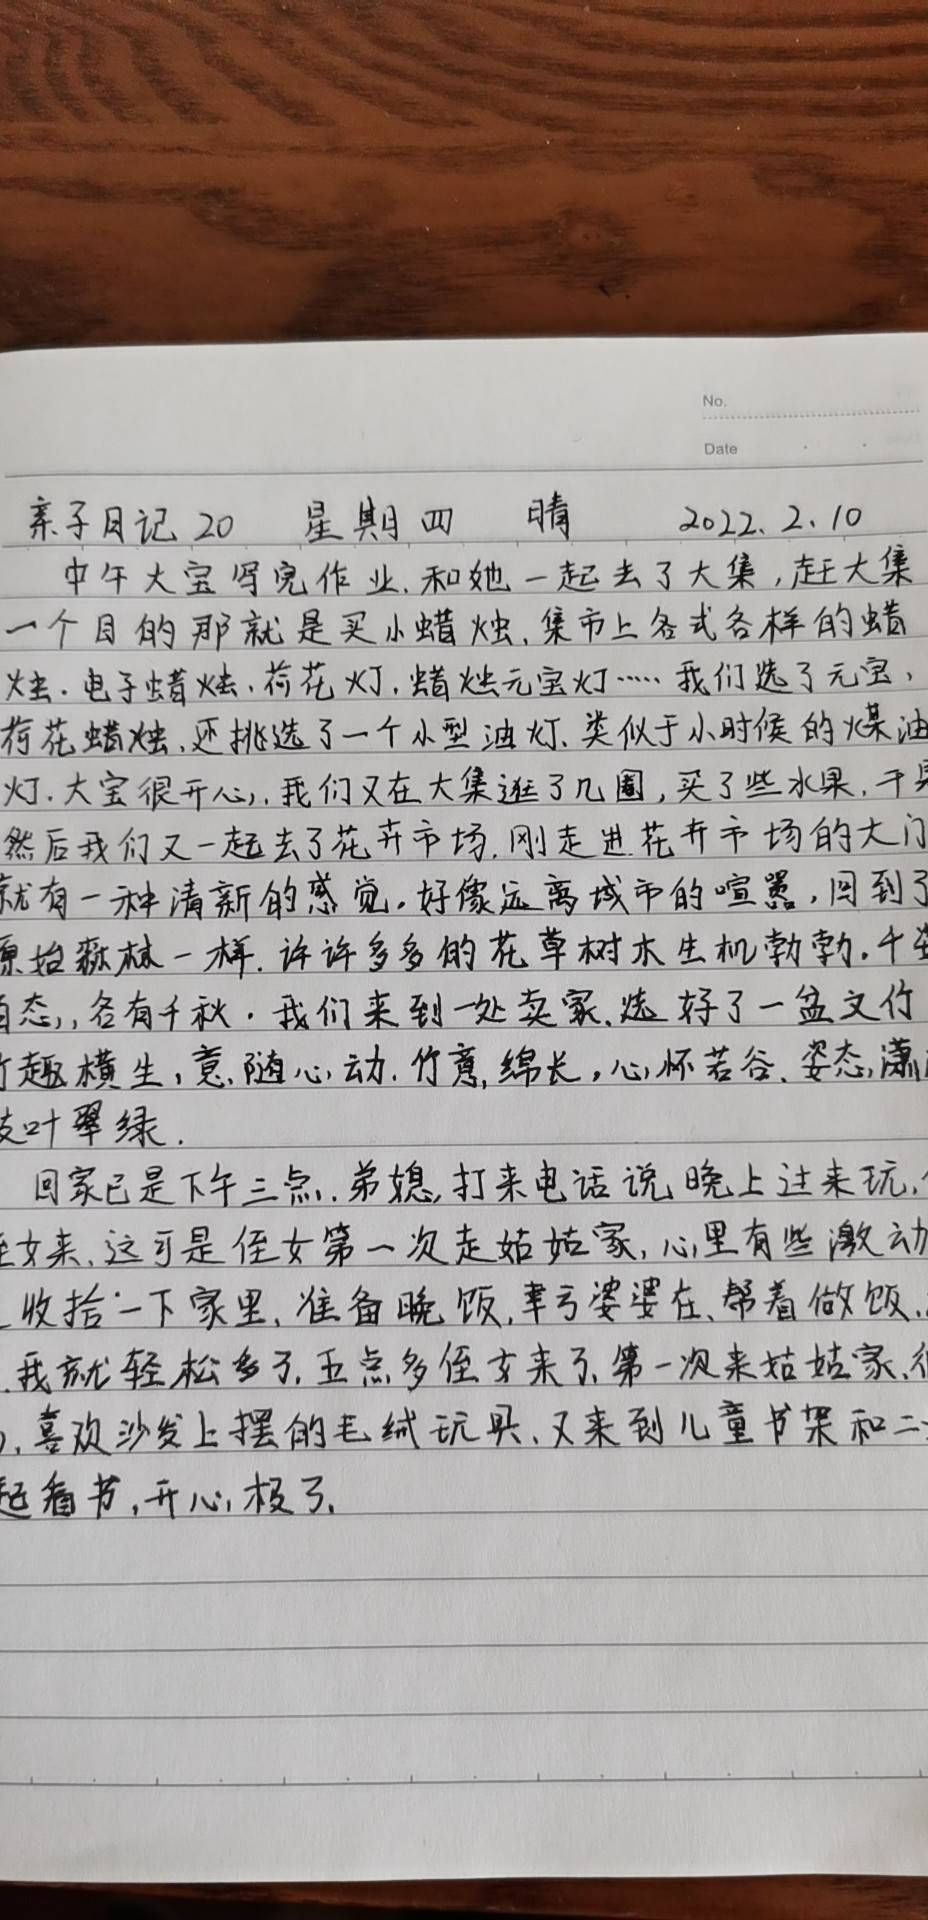 No.
Date
亲子日记20 星期四 晴 2022.2.10
中午大宝写完作业.和她一起去了大集,赶大集
一个目的那就是买小蜡烛.集市上各式各样的蜡
烛.电子蜡烛.荷花灯.蜡烛元宝灯……我们选了元宝,
荷花蜡烛.还挑选了一个小型油灯.类似于小时候的煤油
灯.大宝很开心,我们又在大集逛了几圈,买了些水果.干果
然后我们又一起去了花卉市场.刚走进花卉市场的大门
就有一种清新的感觉.好像远离城市的喧嚣,回到了
原始森林一样.许许多多的花草树木生机勃勃.千姿
百态,各有千秋.我们来到一处卖家.选好了一盆文竹
竹趣横生,意随心动.竹意绵长,心怀若谷、姿态潇
枝叶翠绿.
回家已是下午三点.弟媳打来电话说晚上过来玩,
侄女来.这可是侄女第一次走姑姑家,心里有些激动
收拾一下家里,准备晚饭,幸亏婆婆在、帮着做饭.
.我就轻松多了.五点多侄女来了.第一次来姑姑家.
,喜欢沙发上摆的毛绒玩具.又来到儿童书架和二
起看书,开心极了.